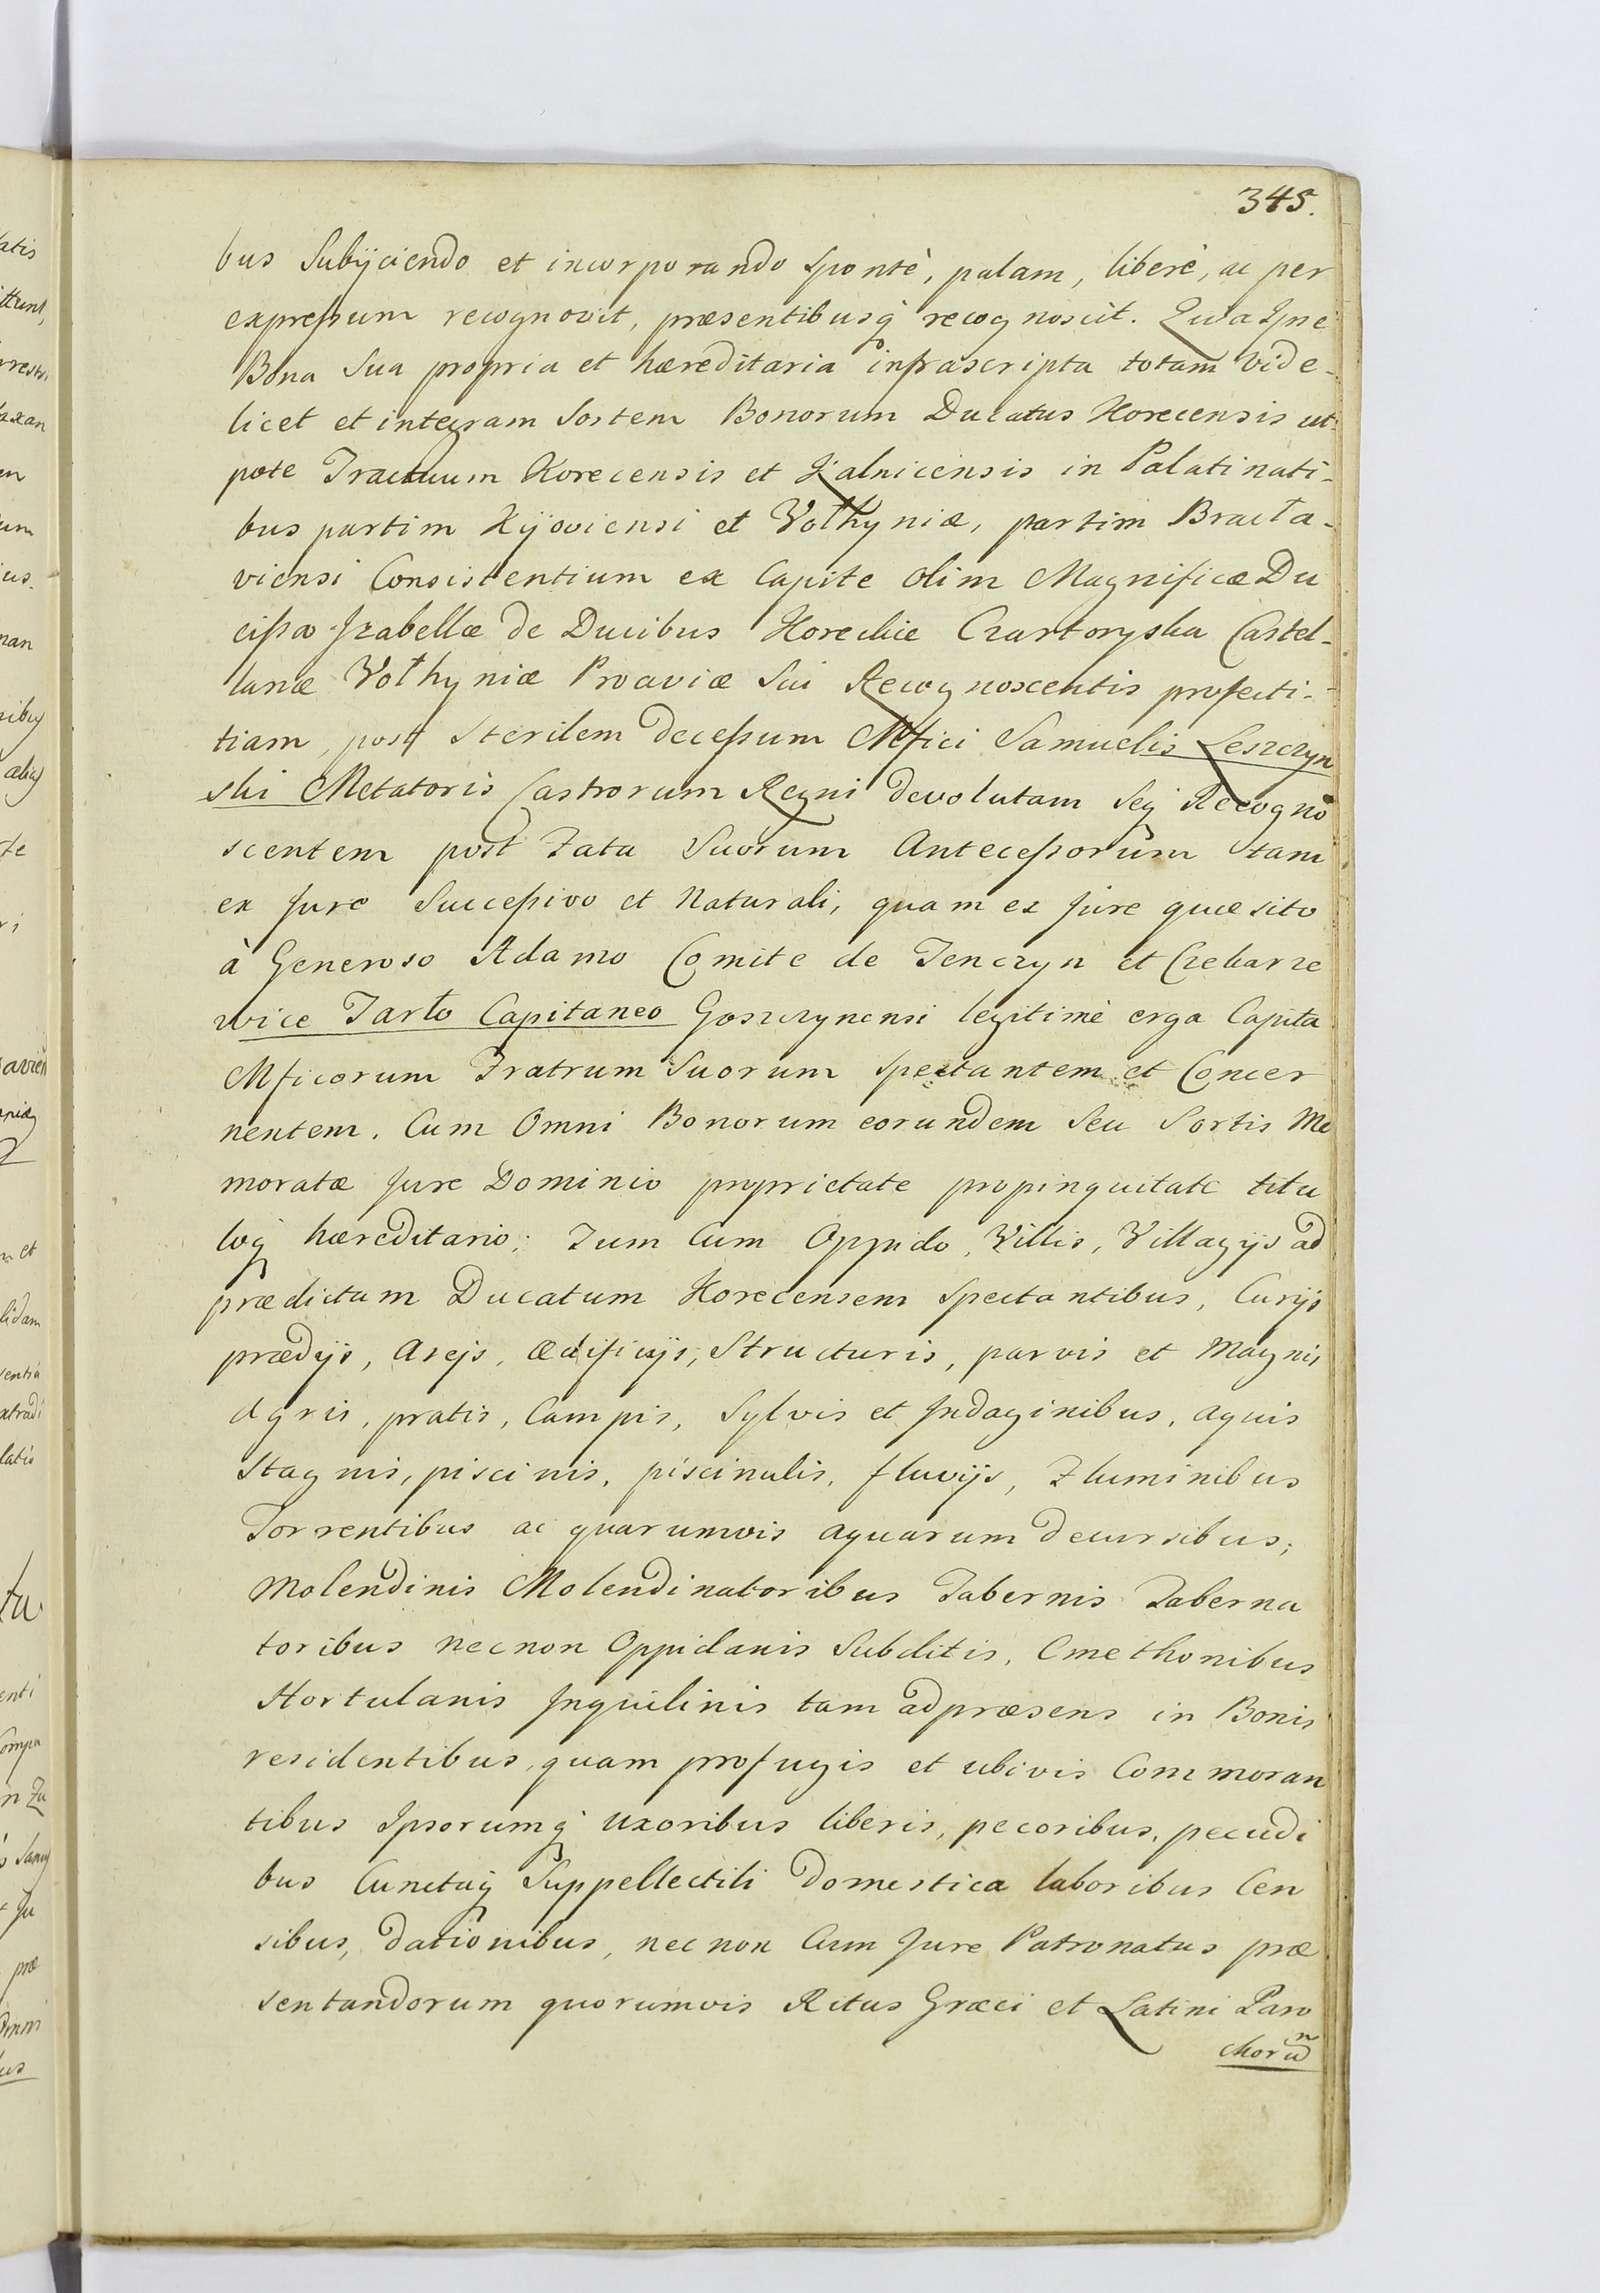 345.
bus Subÿciendo et incorporando Spontè, palam, liberè, ac per
expressum recognovit, præsentibusq recognoscit. Quia Ipse
Bona Sua propria et hæreditaria infrascripta totam vide-
licet et integram Sortem Bonorum Ducatus Korecensis ut-
pote Tractuum Korecensis et Kalnicensis in Palatinati-
bus partim Kÿoviensi et Wołhyniæ, partim Bracła-
viensi Consistentium ex Capite olim Magnificæ Du
cissæ Izabellæ de Ducibus Koreckie Czartoryska Castel-
lanæ Wołhyniæ Proaviæ Sui Recognoscentis profecti-
tiam, post Sterilem decessum Mfici Samuelis Leszczyn
ski Metatoris Castrorum Regni devolutam Seq Recogno
scentem post Fata Suorum Antecessorum tam
ex Jure Successivo et Naturali, quam ex Jure quæsito
à Generoso Adamo Comite de Tenczyn et Czekarze
wice Tarło Capitaneo Goszczynensi legitimè erga Capita
Mficorum Fratrum Suorum Spectantem et Concer
nentem. Cum Omni Bonorum eorundem Seu Sortis Me
moratæ Jure Dominio proprietate propinquitate titu
loq hæreditario; Tum Cum Oppido, Villis, Villagÿs ad
prædictum Ducatum Korecensem Spectantibus, Curÿs
prædÿs, Arejs, Ædificÿs, Structuris, parvis et Magnis
Agris, pratis, Campis, Sylvis et Indaginibus, aquis
Stagnis, piscinis, piscinulis, fluvÿs, Fluminibus
Torrentibus ac quarumvis aquarum decursibus;
Molendinis Molendinatoribus Tabernis Taberna
toribus necnon Oppidanis Subditis, Cmethonibus
Hortulanis Inquilinis tam ad præsens in Bonis
residentibus, quam profugis et ubivis Commoran
tibus Ipsorumq uxoribus liberis, pecoribus, pecudi
bus Cunctaq Suppellectili domestica laboribus Cen
sibus, dationibus, nec non Cum Jure Patronatus præ
sentandorum quorumvis Ritus Græci et Latini Paro
chorum